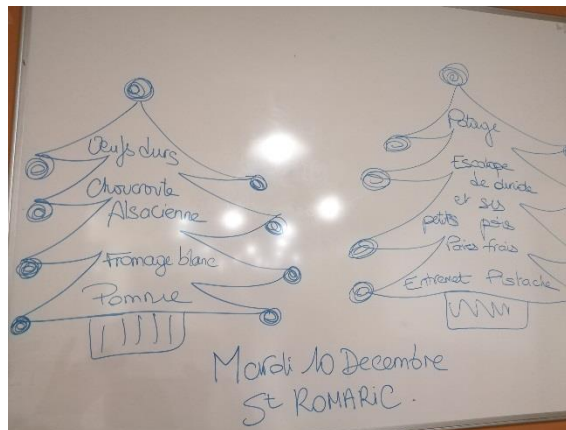 Oeufs durs
Choucroute
Alsacienne
Fromage blanc
Pomme
Potage
Escalope
de dinde
et ses
petits pois
frais
Entremet Pistache
Mardi 10 Decembre
St ROMARIC.